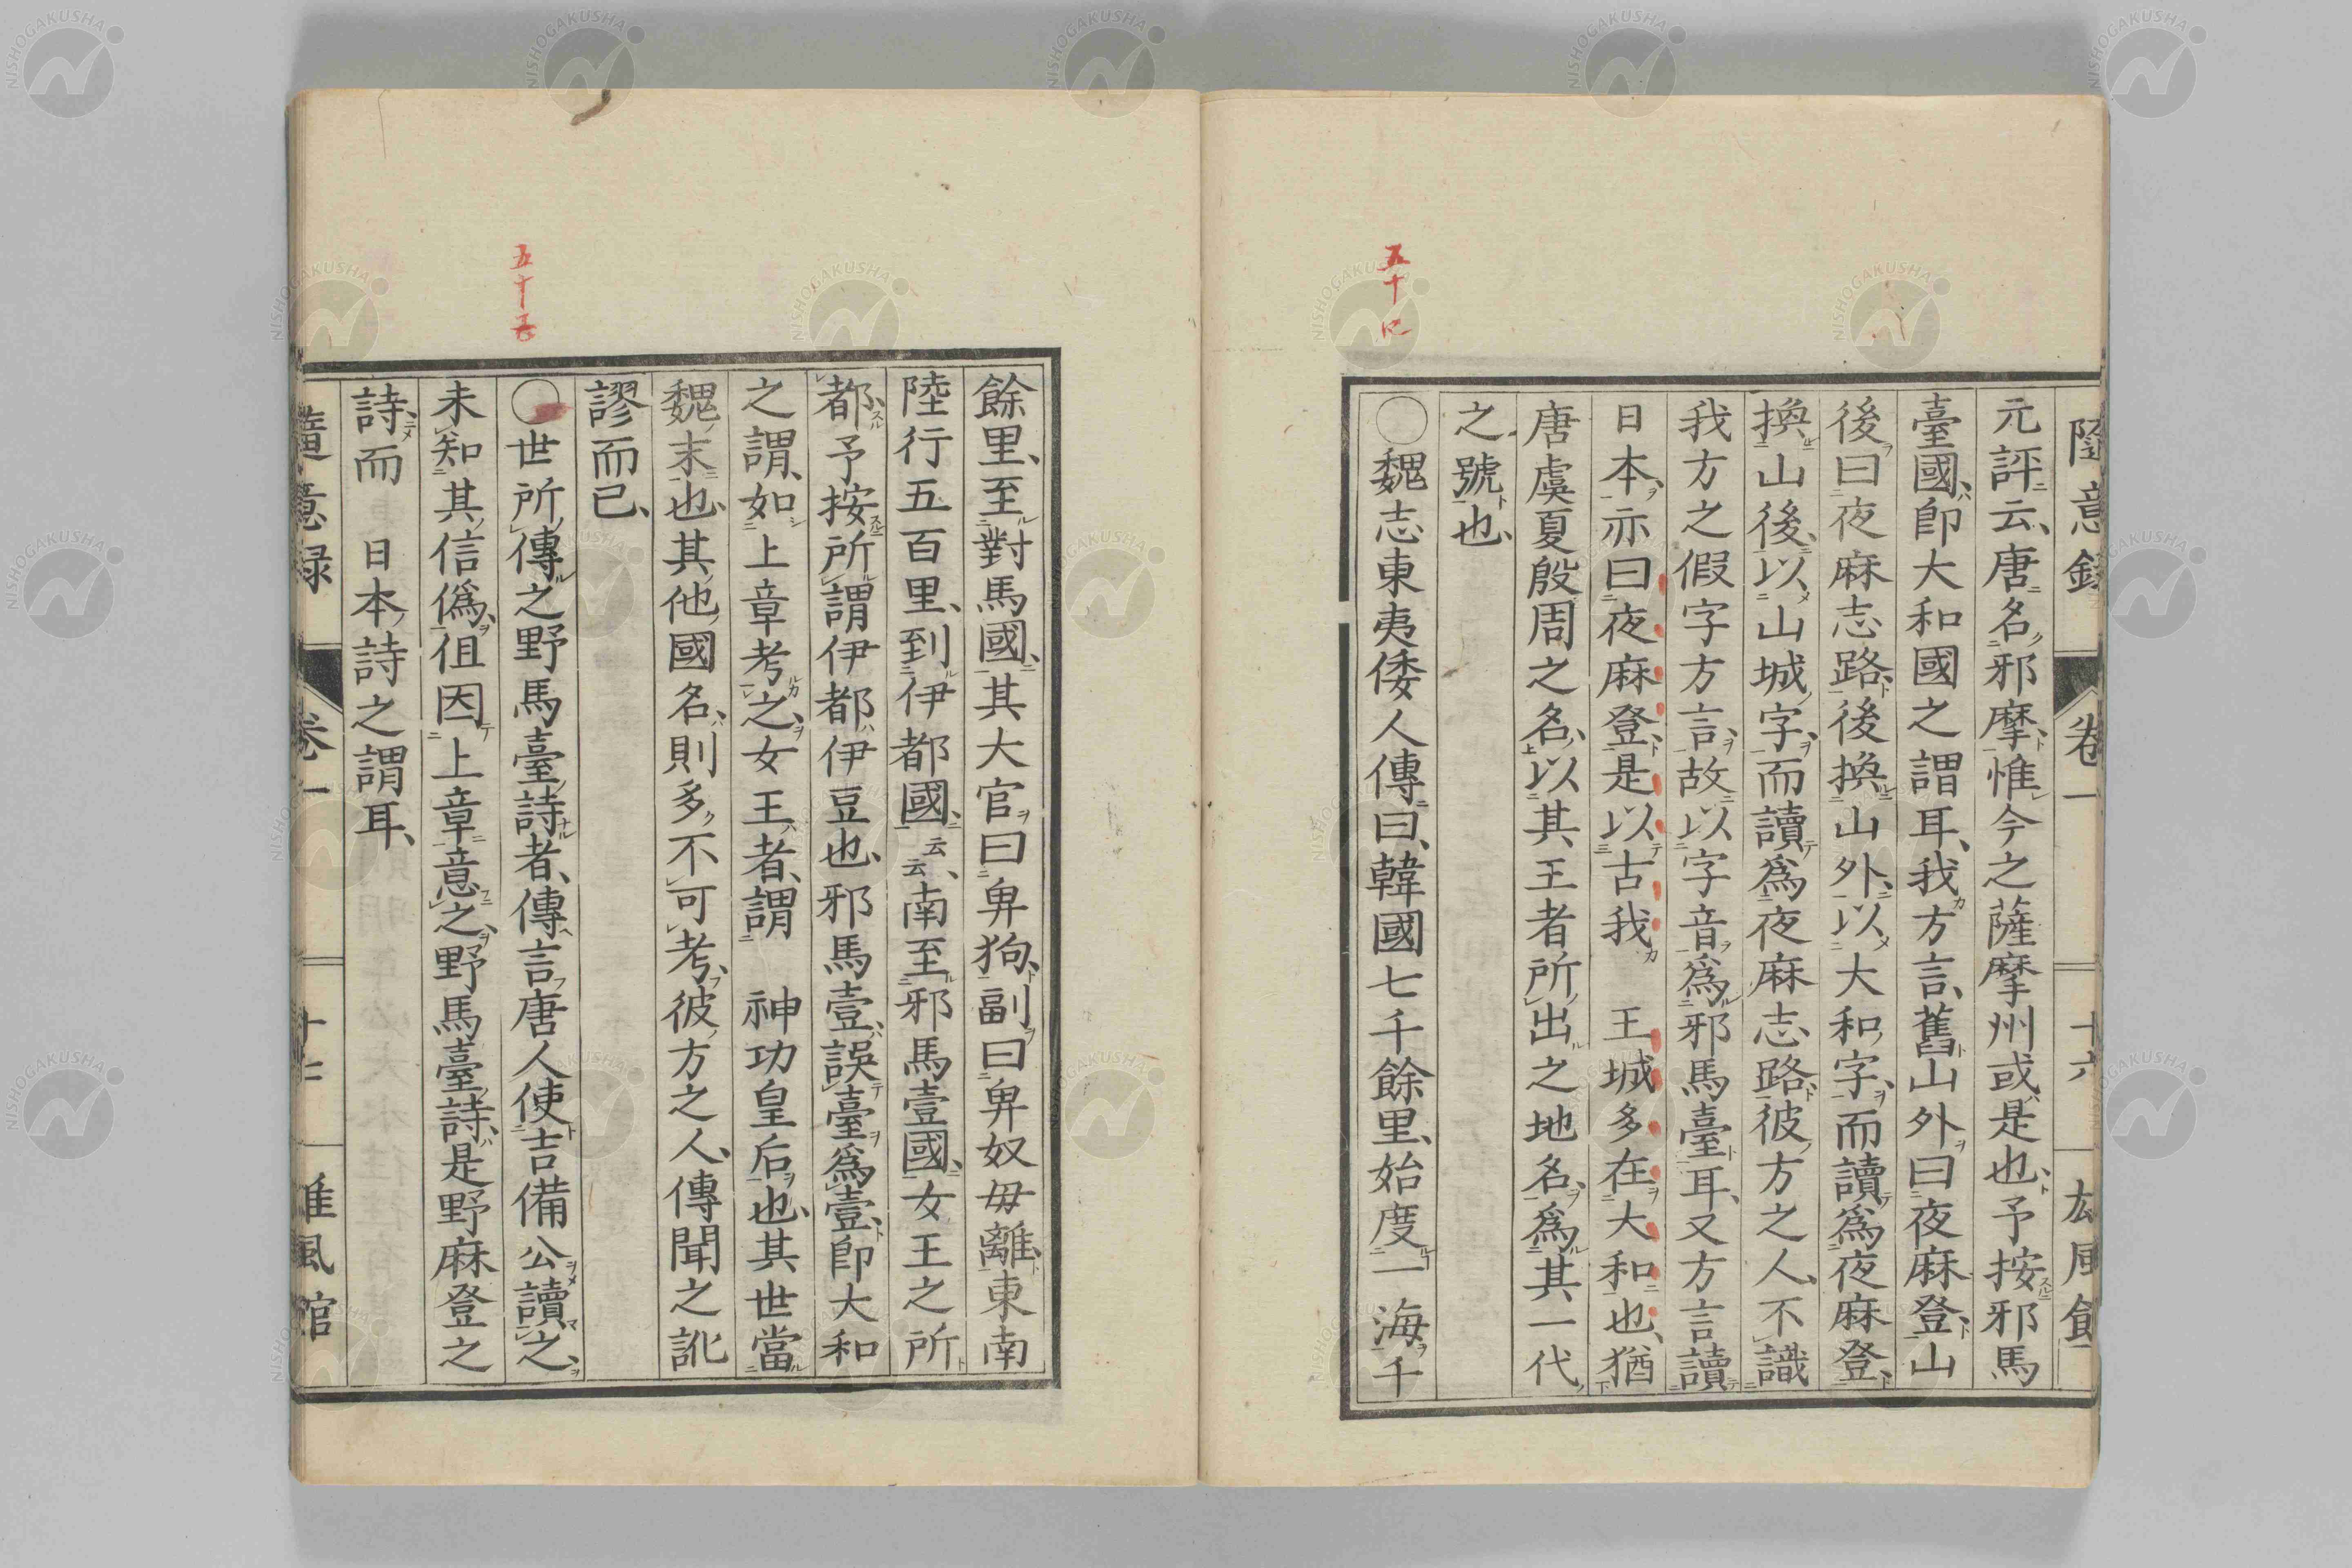 五十四
元評云、唐名邪摩、惟今之薩摩州或是也、予按邪馬
臺國、即大和國之謂耳、我方言、舊山外曰夜麻登、山
後曰夜麻志路、後換山外、以大和字、而讀爲夜麻登、
換山後、以山城字、而讀爲夜麻志路、彼方之人、不識
我方之假字方言、故以字音爲邪馬臺耳、又方言讀
日本、亦曰夜麻登、是以古我 王城多在大和也、猶
唐虞夏殷周之名、以其王者所出之地名、爲其一代
之號也、
○魏志東夷倭人傳曰、韓國七千餘里、始度一海千
卷一
十六
五十五
餘里、至對馬國、其大官曰卑狗、副曰卑奴毋離、東南
陸行五百里、到伊都國、云云、南至邪馬壹國、女王之所
都、予按所謂伊都伊豆也、邪馬壹、誤臺爲壹、即大和
之謂、如上章考之、女王者、謂 神功皇后也、其世當
魏末也、其他國名、則多不可考、彼方之人、傳聞之訛
謬而已、
○世所傳之野馬臺詩者、傳言唐人使吉備公讀之、
未知其信僞、但因上章意之、野馬臺詩、是野麻登之
詩而 日本詩之謂耳、
意録
卷一
NISHOGAKUSHA